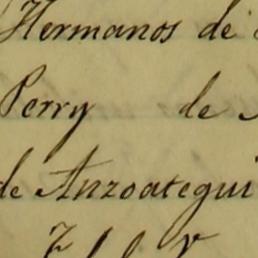 Hermanos de
Perry de
de Anzoategui